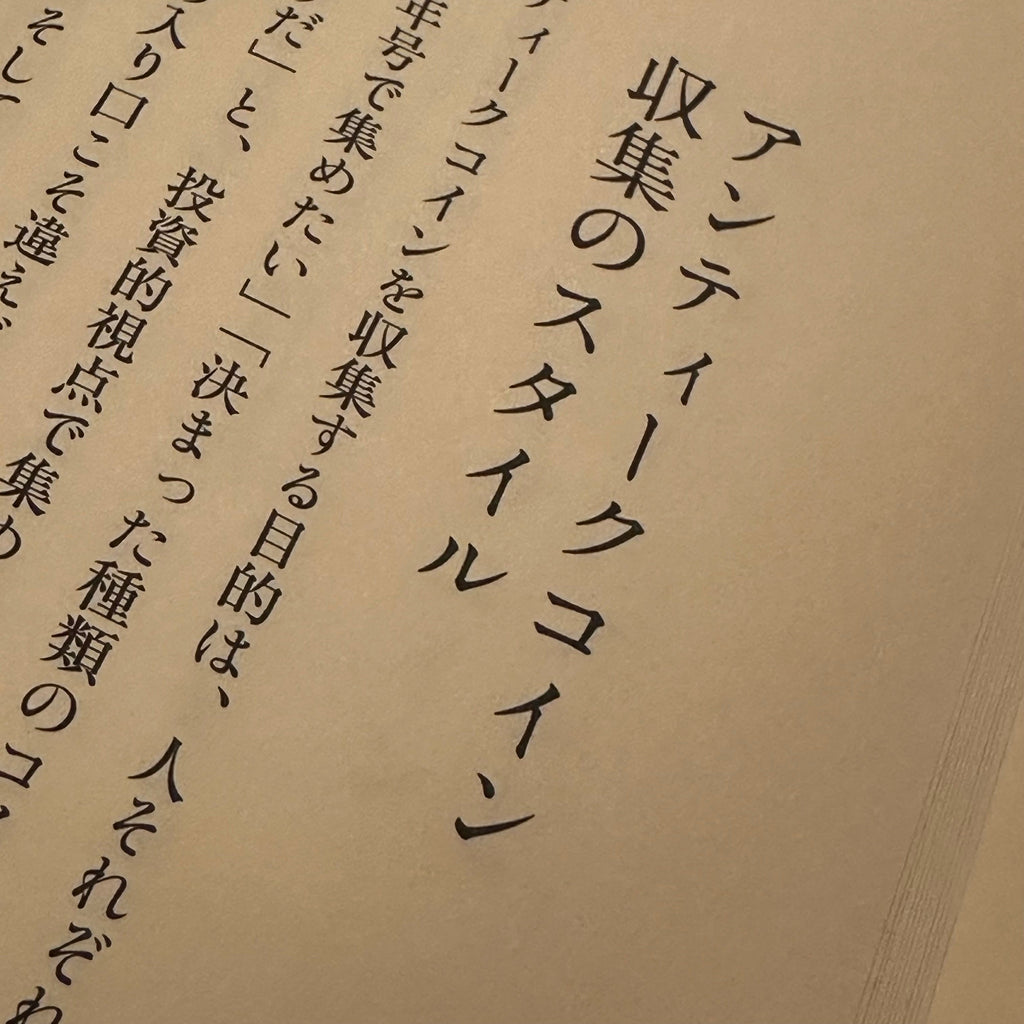 アンティークコイン
収集のスタイル
ティークコインを収集する目的は、人それぞれ
年号で集めたい」「決まった種類のコイ
だ」と、投資的視点で集め
入り口こそ違えど
そして